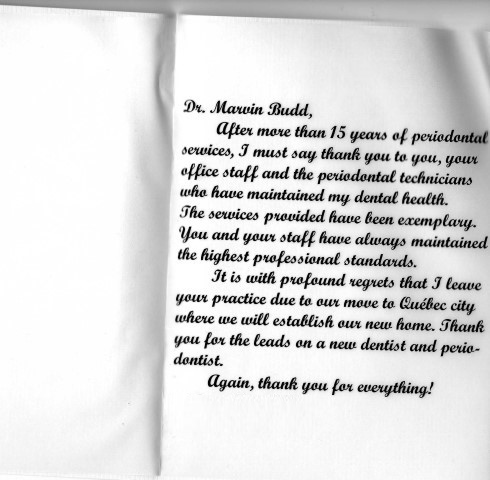 Dr. Marvin Budd,
After more than 15 years of periodontal
services, I must say thank you to you, your
office staff and the periodontal technicians
who have maintained my dental health.
The services provided have been exemplary.
You and your staff have always maintained
the highest professional standards.
It is with profound regrets that I leave
your practice due to our move to Québec city
where we will establish our new home. Thank
you for the leads on a new dentist and perio-
dontist.
Again, thank you for everything!